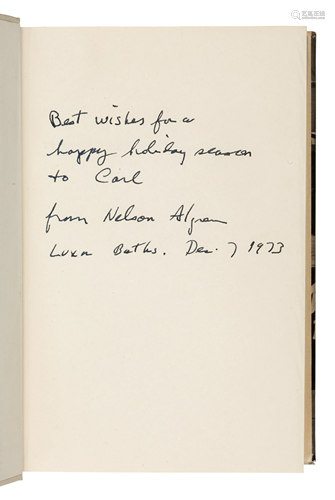 Best wishes for a
happy holiday season
to Carl
from Nelson Algren
Luxor Baths. Dec. 7 1973